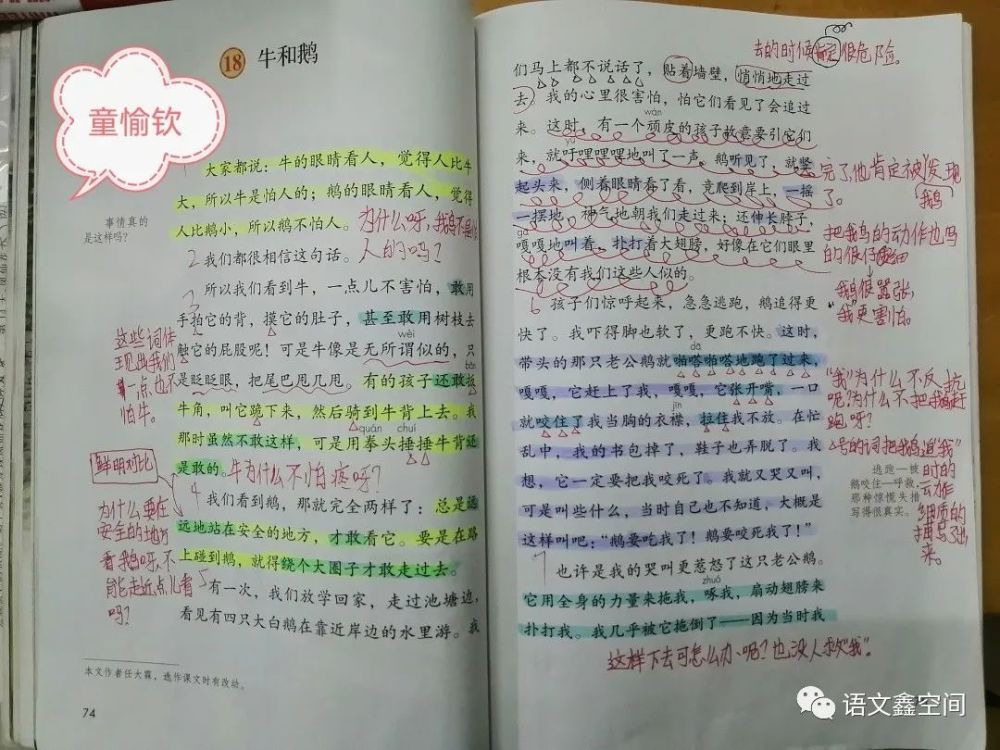 童愉钦
18 牛和鹅
大家都说：牛的眼睛看人，觉得人比牛
大，所以牛是怕人的；鹅的眼睛看人，觉得
人比鹅小，所以鹅不怕人。
事情真的
是这样吗？
为什么呀，我
人的吗？
2 我们都很相信这句话。
3 所以我们看到牛，一点儿不害怕，敢用
手拍它的背，摸它的肚子，甚至敢用树枝去
wèi
触它的屁股呢！可是牛像是无所谓似的，只
是眨眨眼，把尾巴甩几甩。有的孩子还敢扳
牛角，叫它跪下来，然后骑到牛背上去。我
quán chuí
那时虽然不敢这样，可是用拳头捶捶牛背还
是敢的。牛为什么不怕疼呀？
这些词体
现出我们
一点也不
怕牛。
鲜明对比
4 我们看到鹅，那就完全两样了：总是远
远地站在安全的地方，才敢看它。要是在路
上碰到鹅，就得绕个大圈子才敢走过去。
为什么要在
安全的地方
看鹅呀，不
能走近点儿看
吗？
5 有一次，我们放学回家，走过池塘边，
看见有四只大白鹅在靠近岸边的水里游。我
本文作者任大霖，选作课文时有改动。
74
去的时候肯定很危险。
们马上都不说话了，贴着墙壁，悄悄地走过
去。我的心里很害怕，怕它们看见了会追过
wán
来。这时，有一个顽皮的孩子故意要引它们
yū
来，就吁哩哩哩地叫了一声。鹅听见了，就竖
起头来，侧着眼睛看了看，竟爬到岸上，一摇
一摆地、神气地朝我们走过来；还伸长脖子，
gā
嘎嘎地叫着，扑打着大翅膀，好像在它们眼里
根本没有我们这些人似的。
完了，他肯定被发现
了。
鹅
把鹅的动作也写
的很仔细
鹅很嚣张，
“我”更害怕。
6 孩子们惊呼起来，急急逃跑，鹅追得更
快了。我吓得脚也软了，更跑不快。这时，
dā
带头的那只老公鹅就啪嗒啪嗒地跑了过来，
嘎嘎，它赶上了我，嘎嘎，它张开嘴，一口
jīn
就咬住了我当胸的衣襟，拉住我不放。在忙
乱中，我的书包掉了，鞋子也弄脱了。我
想，它一定要把我咬死了。我就又哭又叫，
可是叫些什么，当时自己也不知道，大概是
这样叫吧：“鹅要吃我了！鹅要咬死我了！”
“我”为什么不反抗
呢？为什么不把鹅赶
跑呀？
△号的词把鹅追“我”
时的
动作
细质的
描写了出
来。
逃跑—被
鹅咬住—呼救，
那种惊慌失措
写得很真实。
7 也许是我的哭叫更惹怒了这只老公鹅。
zhuó
它用全身的力量来拖我，啄我，扇动翅膀来
扑打我。我几乎被它拖倒了——因为当时我
这样下去可怎么办呢？也没人救“我”。
语文鑫空间